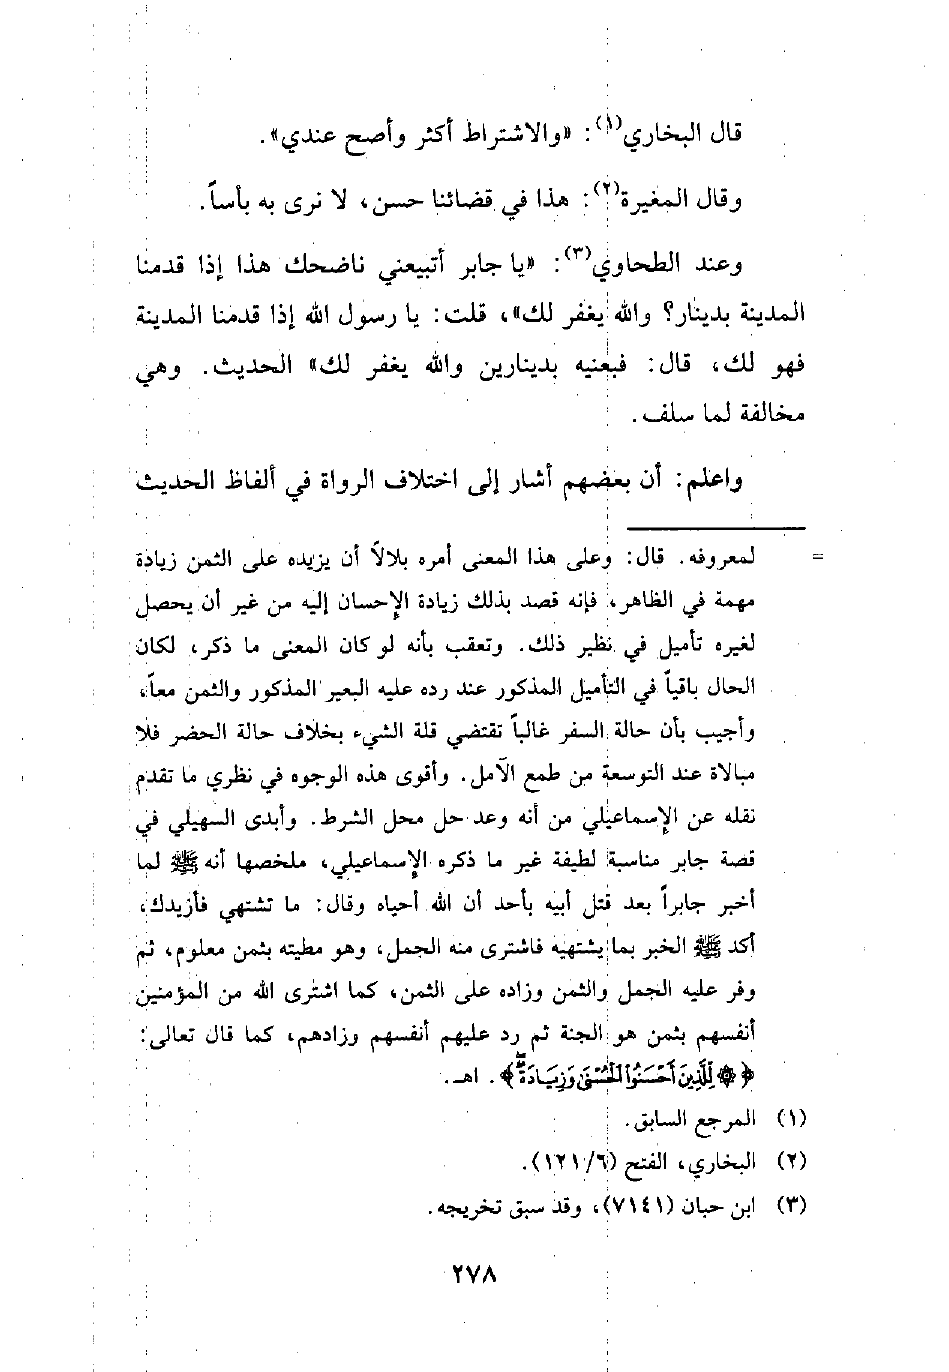 قال البخاري(١): «والاشتراط أكثر وأصح عندي».
وقال المغيرة(٢): هذا في قضائنا حسن، لا نرى به بأساً.
وعند الطحاوي(٣): «يا جابر أتبيعني ناضحك هذا إذا قدمنا
المدينة بدينار؟ والله يغفر لك»، قلت: يا رسول الله إذا قدمنا المدينة
فهو لك، قال: فبعنيه بدينارين والله يغفر لك» الحديث. وهي
مخالفة لما سلف.
واعلم: أن بعضهم أشار إلى اختلاف الرواة في ألفاظ الحديث
= لمعروفه. قال: وعلى هذا المعنى أمره بلالاً أن يزيده على الثمن زيادة
مهمة في الظاهر، فإنه قصد بذلك زيادة الإحسان إليه من غير أن يحصل
لغيره تأميل في نظير ذلك. وتعقب بأنه لو كان المعنى ما ذكر، لكان
الحال باقياً في التأميل المذكور عند رده عليه البعير المذكور والثمن معاً،
وأجيب بأن حالة السفر غالباً تقتضي قلة الشيء بخلاف حالة الحضر فلا
مبالاة عند التوسعة من طمع الآمل. وأقوى هذه الوجوه في نظري ما تقدم
نقله عن الإسماعيلي من أنه وعد حل محل الشرط. وأبدى السهيلي في
قصة جابر مناسبة لطيفة غير ما ذكره الإسماعيلي، ملخصها أنه ﷺ لما
أخبر جابراً بعد قتل أبيه بأحد أن الله أحياه وقال: ما تشتهي فأزيدك،
أكد ﷺ الخبر بما يشتهيه فاشترى منه الجمل، وهو مطيته بثمن معلوم، ثم
وفر عليه الجمل والثمن وزاده على الثمن، كما اشترى الله من المؤمنين
أنفسهم بثمن هو الجنة ثم رد عليهم أنفسهم وزادهم، كما قال تعالى:
﴿ ۞ لِلَّذِينَ أَحْسَنُوا الْحُسْنَىٰ وَزِيَادَةٌ ۖ ﴾. اهـ.
(١) المرجع السابق.
(٢) البخاري، الفتح (١٢١/٦).
(٣) ابن حبان (٧١٤١)، وقد سبق تخريجه.
٢٧٨